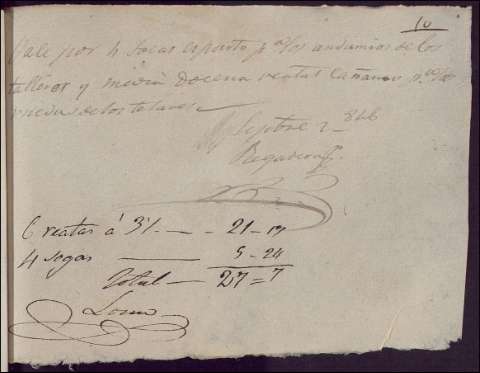 10
Vale por 4 sogas esparto pa. los andamios de los
talleres y media docena reatas Cañamo pa. las
ruedas de los telares
Sepbre 2 846
Regadera
6 reatas á 3½ — 21-17
4 sogas — 5-24
Total — 27=7